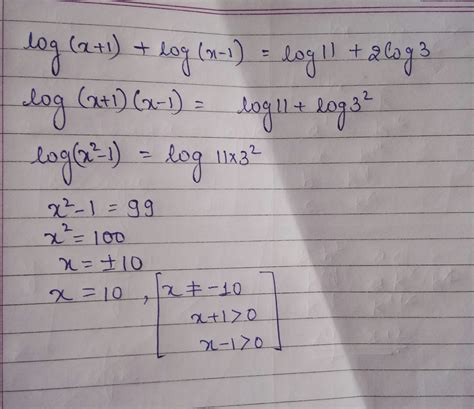 log (x+1) + log (x-1) = log 11 + 2log 3
log (x+1) (x-1) = log 11 + log 3²
log(x²-1) = log 11×3²
x²-1 = 99
x² = 100
x = ±10
x = 10 , [x ≠ -10
x+1>0
x-1>0]